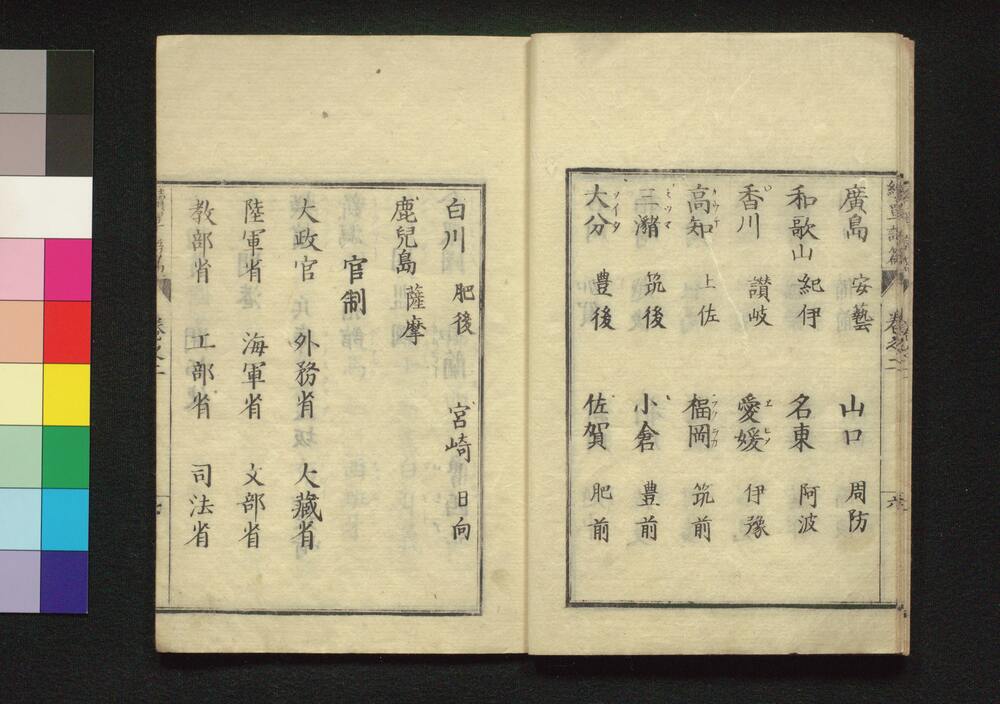 廣島 安藝 山口 周防
和歌山 紀伊 名東 阿波
香川 讃岐 愛媛 伊豫
高知 土佐 福岡 筑前
三潴 筑後 小倉 豊前
大分 豊後 佐賀 肥前
白川 肥後 宮崎 日向
鹿兒島 薩摩
官制
大政官 外務省 大藏省
陸軍省 海軍省 文部省
教部省 工部省 司法省
卷之二
六